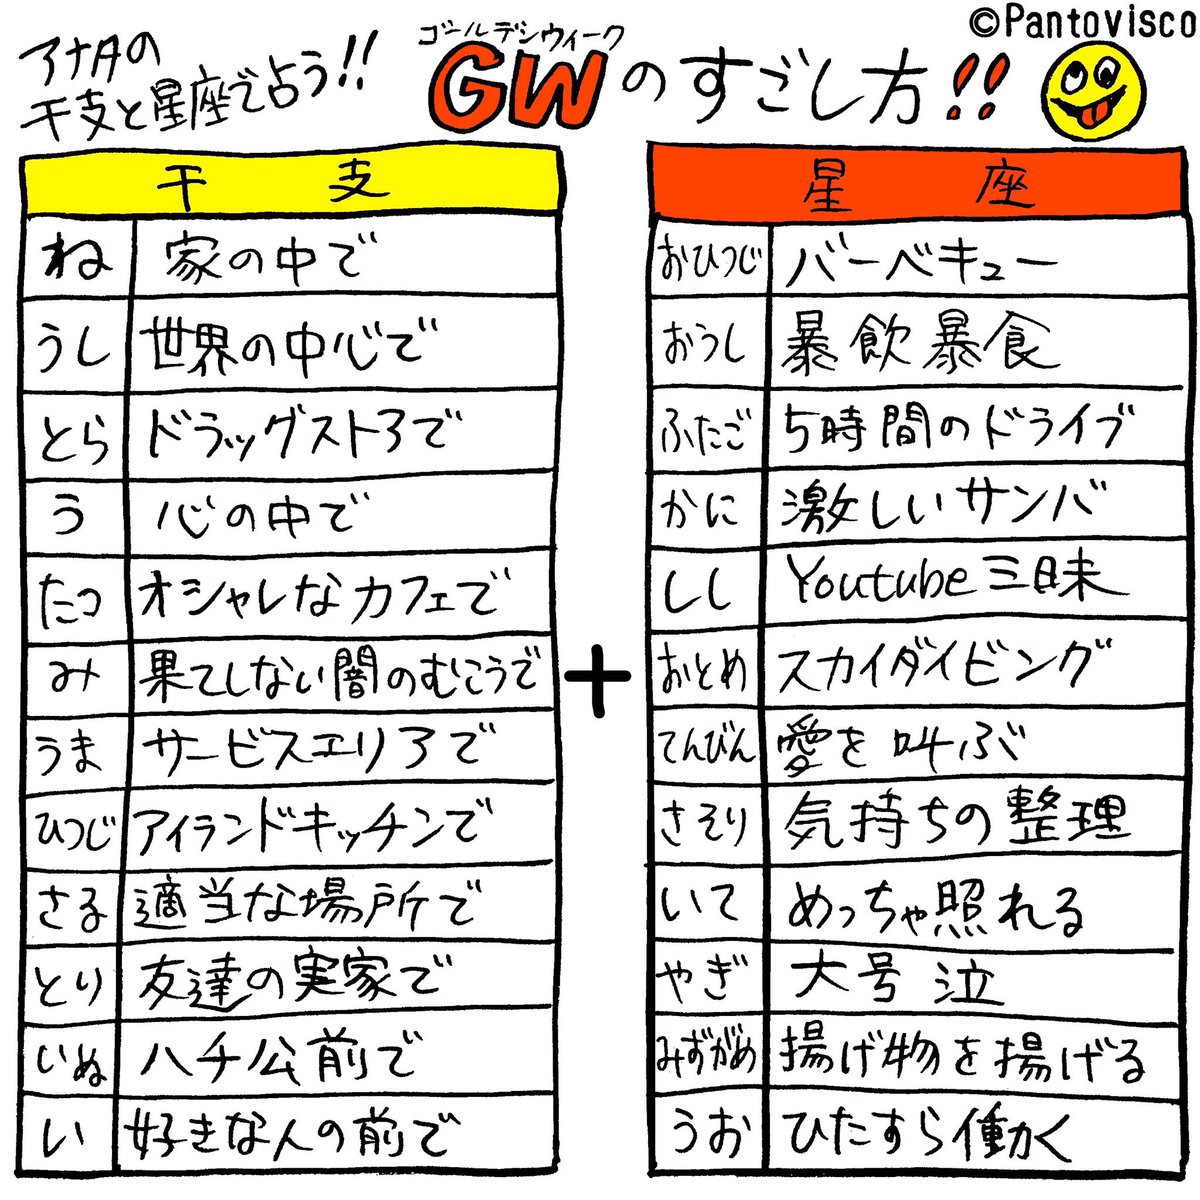 ©Pantovisco
アナタの
干支と星座で占う!!
ゴールデンウィーク
GWのすごし方!!
干支
ね 家の中で
うし 世界の中心で
とら ドラッグストアで
う 心の中で
たつ オシャレなカフェで
み 果てしない闇のむこうで
うま サービスエリアで
ひつじ アイランドキッチンで
さる 適当な場所で
とり 友達の実家で
いぬ ハチ公前で
い 好きな人の前で
+
星座
おひつじ バーベキュー
おうし 暴飲暴食
ふたご 5時間のドライブ
かに 激しいサンバ
しし Youtube三昧
おとめ スカイダイビング
てんびん 愛を叫ぶ
さそり 気持ちの整理
いて めっちゃ照れる
やぎ 大号泣
みずがめ 揚げ物を揚げる
うお ひたすら働く